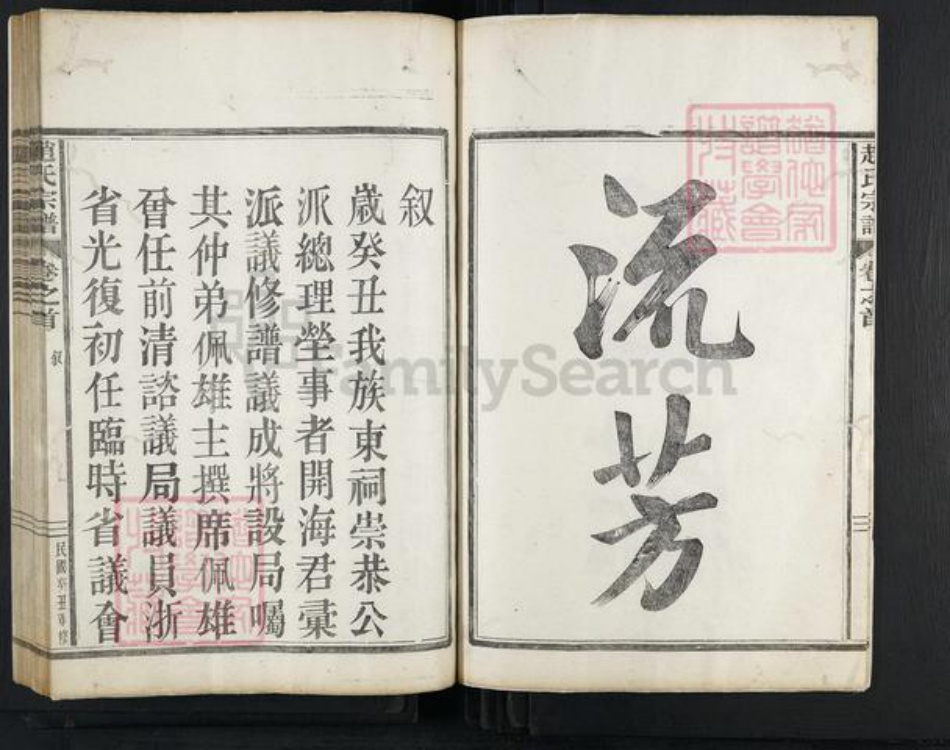 趙氏宗譜 卷之首
流芳
叙
歲癸丑我族東祠崇恭公
派總理塋事者開海君彙
派議修譜議成將設局囑
其仲弟佩雄主撰席佩雄
曾任前清諮議局議員浙
省光復初任臨時省議會
趙氏宗譜 卷之首 叙 二
FamilySearch